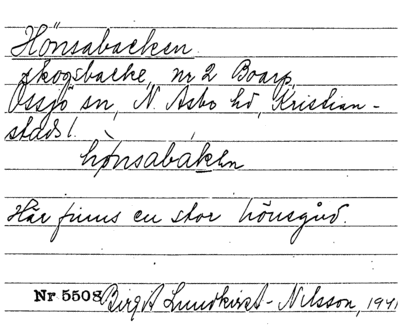 Hönsabacken
skogsbacke, nr 2 Boarp,
Össjö sn, N. Åsbo hd, Kristian-
stads l.
hǿnsabákɛn
Här finns en stor hönsgård.
Nr 5508 Birgit Lundkvist-Nilsson, 1941